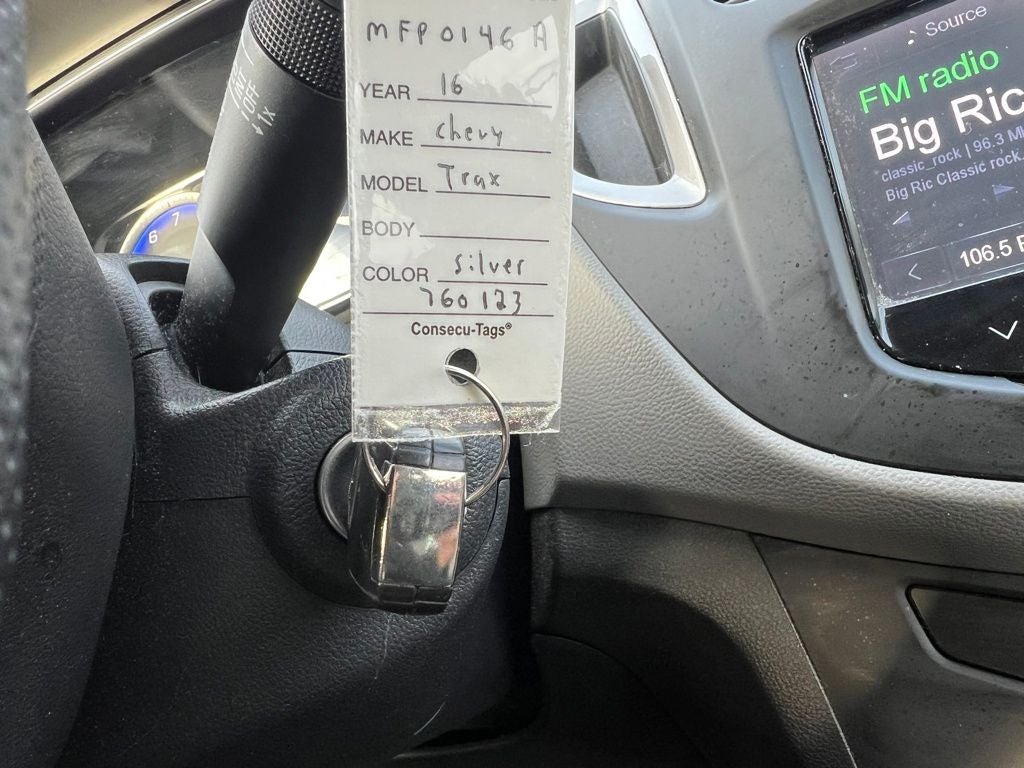 MFP0146A
YEAR 16
MAKE chevy
MODEL Trax
BODY
COLOR silver
760123
Consecu-Tags®
OFF
1x
6 7
Source
FM radio
Big Ric
classic_rock | 96.3 M
Big Ric Classic rock.
106.5